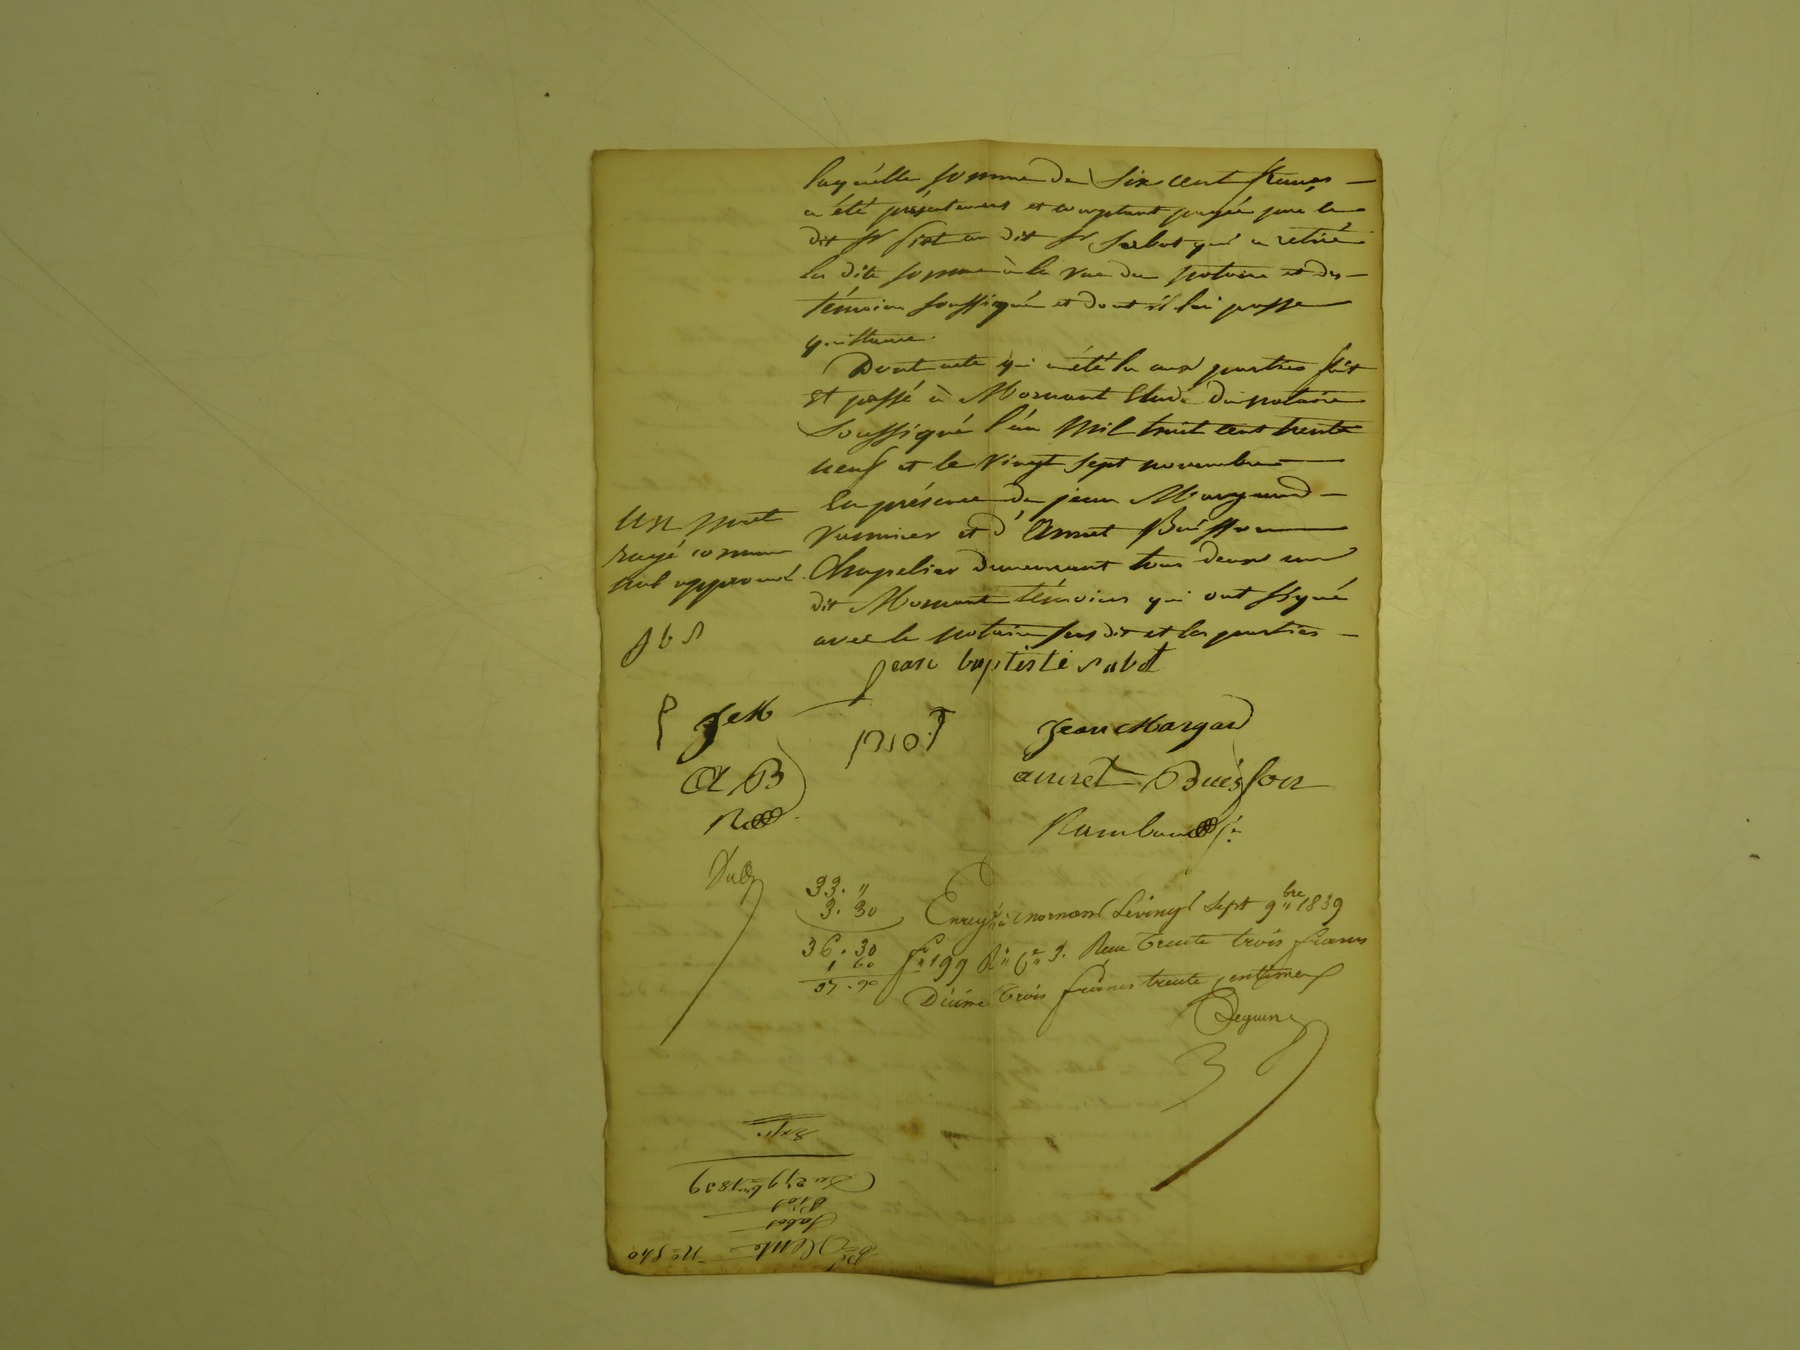 laquelle somme de Six cent francs —
a été présentement et comptant payée par le
dit Sr Piot au dit Sr Sabot qui a retiré
la dite somme à la vue du notaire et des —
témoins soussignés et dont il lui passe
quittance.
Dont acte qui a été lu aux parties fait
et passé à Mornant Etude du notaire
Soussigné l'an Mil huit cent trente
neuf et le vingt sept novembre —
En présence de jean Margand —
vannier et d'Annet Buisson
Chapelier demeurant tous deux au
dit Mornant témoins qui ont signé
avec le notaire sus dit et les parties —
Un mot
rayé comme
nul approuvé.
J b S
jean baptiste sabot
P
JeM
piot
Jean Margad
A B
annet Buisson
33. "
3. 30
36. 30
1 60
37. 90
Enregtré à mornant Le vingt Sept 9bre 1839
fo 199 Ro Ce 3. Reçu trente trois francs
Décime trois francs trente centimes
Expn.
Du 27 9bre 1839
Piot
Sabot
Vente No 540